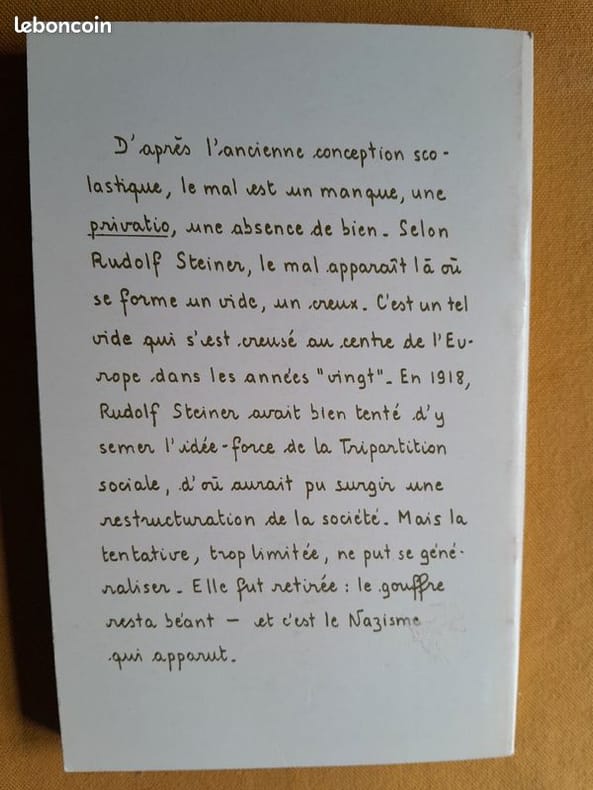 leboncoin
D'après l'ancienne conception sco-
lastique, le mal est un manque, une
privatio, une absence de bien. Selon
Rudolf Steiner, le mal apparaît là où
se forme un vide, un creux. C'est un tel
vide qui s'est creusé au centre de l'Eu-
rope dans les années "vingt". En 1918,
Rudolf Steiner avait bien tenté d'y
semer l'idée-force de la Tripartition
sociale, d'où aurait pu surgir une
restructuration de la société. Mais la
tentative, trop limitée, ne put se géné-
raliser. Elle fut retirée : le gouffre
resta béant — et c'est le Nazisme
qui apparut.